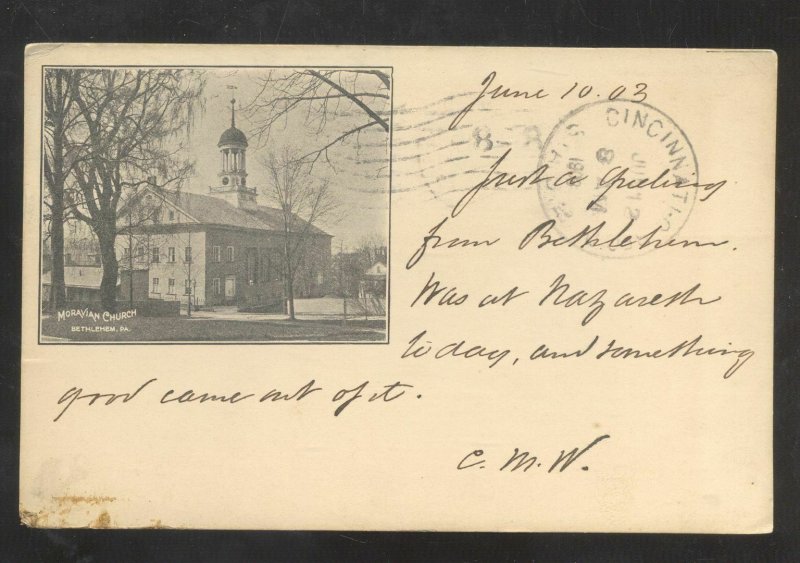 June 10. 03
CINCINNATI, O.
JUN 12
8
Just a Greeting
from Bethlehem.
Was at Nazareth
to day, and something
good came out of it.
C. M. W.
MORAVIAN CHURCH
BETHLEHEM, PA.